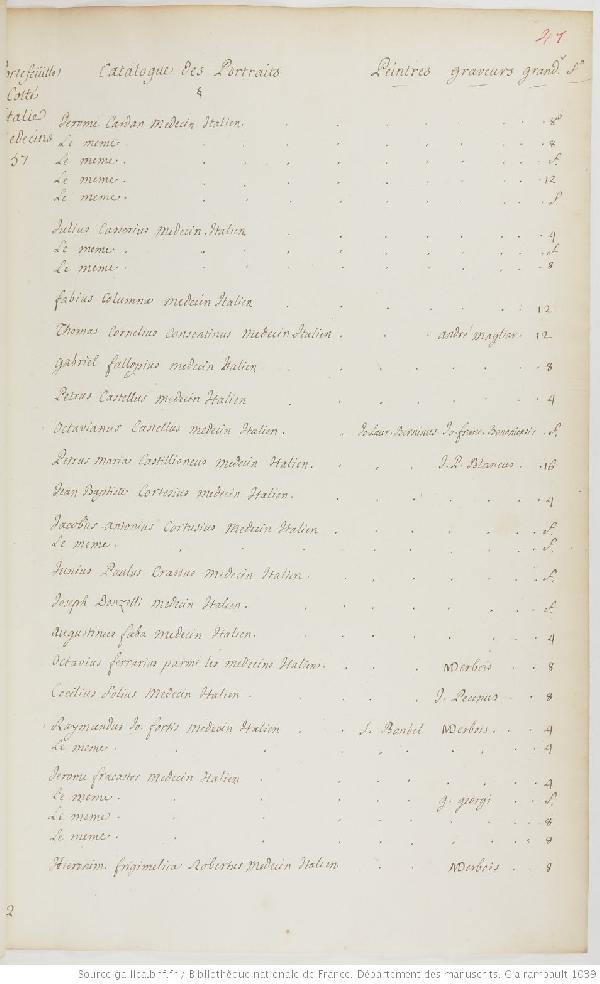 47
ortefeuille Catalogue Des Portraits Peintres graveurs grandr fo
Cotté &
talie
edecins
57
Jerome Cardan Medecin Italien. 8o
Le meme. 8
Le meme. f.
Le meme. 12
Le meme. f
Julius Casserius Medecin Italien 4
Le meme. f.
Le meme. 8
fabius Columna medecin Italien 12
Thomas Cornelius Consentinus Medecin Italien. andré magliar. 12
Gabriel fallopius medecin Italien 8
Petrus Castellus medecin Italien 4
Octavianus Castellus medecin Italien. Jo. Laur. Berninus Jo. franc. f.
Petrus Maria Castillioneus medecin Italien. J. P. Blancus. 16
Jean Baptiste Cortesius medecin Italien. 4
Jacobus antonius Cortusius Medecin Italien f.
Le meme. f.
Junius Paulus Crassus medecin Italien. f.
Joseph Donzelli medecin Italien. f.
augustinus faba medecin Italien. 4
Octavius ferrarius parmi les medecins Italiens. 8
Cecilius folius Medecin Italien J. Pecinus 8
Raymundus Jo. fortis medecin Italien 4
Le meme. 4
Jerome fracastor medecin Italien 4
Le meme. g. georgi f.
Le meme. 8
Le meme. 8
Hieronim. frigimelica Robertus Medecin Italien 8
2
Source gallica.bnf.fr / Bibliothèque nationale de France. Département des manuscrits. Clairambault 1039